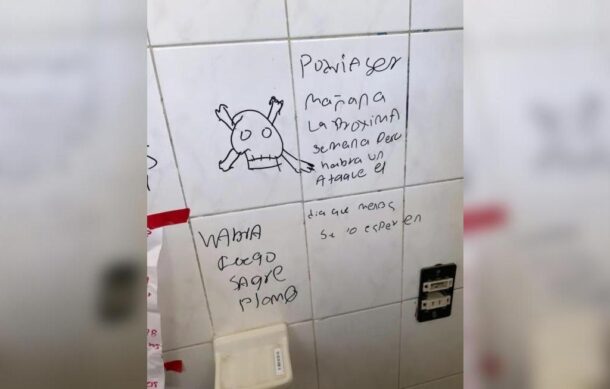 Podria ser
mañana
La Proxima
semana Pero
habra un
Ataque el
dia que menos
se lo esperen
Habra
fuego
sagre
plomo